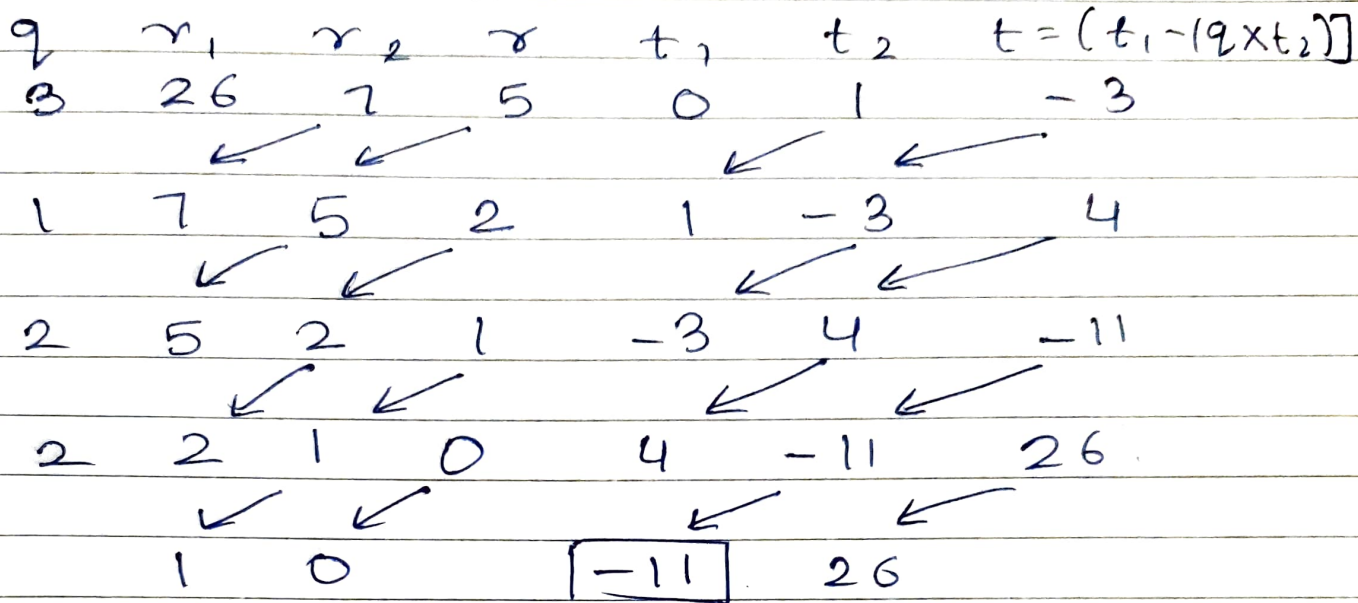 q r₁ r₂ r t₁ t₂ t = (t₁-(q×t₂)]
3 26 7 5 0 1 -3
1 7 5 2 1 -3 4
2 5 2 1 -3 4 -11
2 2 1 0 4 -11 26
1 0 -11 26